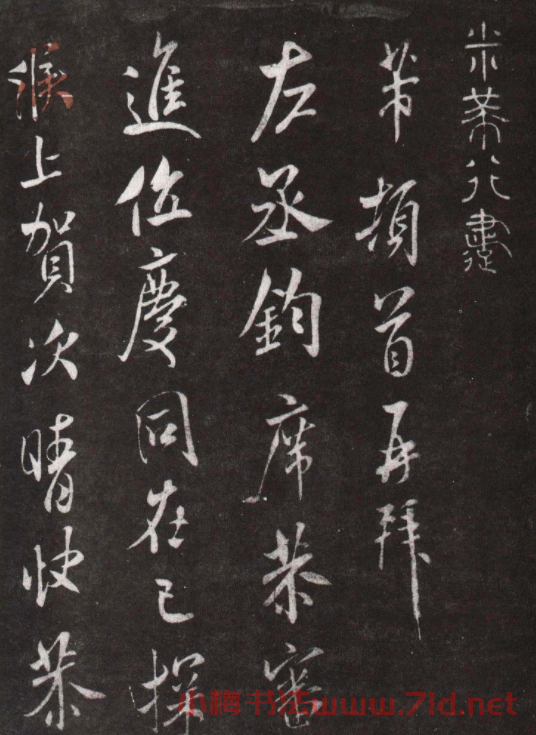 米芾八行書
芾頓首再拜
左丞鈞席恭審
進位慶同在已探
候上賀次晴快恭
小楷书法www.7ld.net